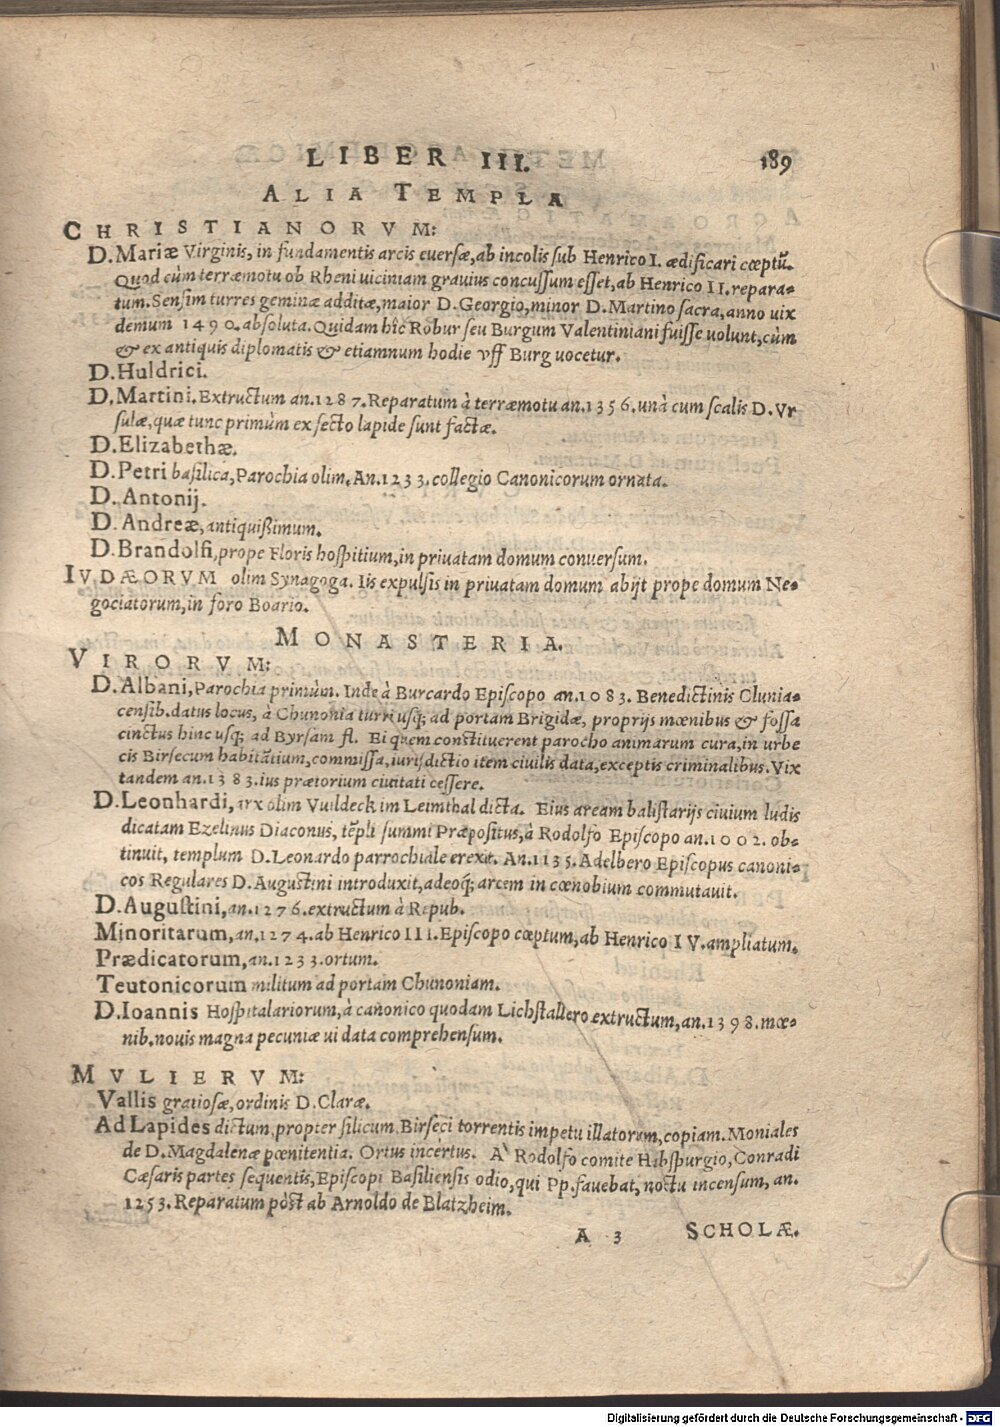 LIBER III. 189
ALIA TEMPLA
CHRISTIANORVM:
D. Mariæ Virginis, in fundamentis arcis euersæ, ab incolis sub Henrico I. ædificari cœptũ.
Quod cùm terræmotu ob Rheni uiciniam grauius concussum esset, ab Henrico II. repara-
tum. Sensim turres geminæ additæ, maior D. Georgio, minor D. Martino sacra, anno uix
demum 1490. absoluta. Quidam hîc Robur seu Burgum Valentiniani fuisse uolunt, cùm
& ex antiquis diplomatis & etiamnum hodie vff Burg uocetur.
D. Huldrici.
D. Martini. Extructum an. 1287. Reparatum à terræmotu an. 1356. unà cum scalis D. Vr
sulæ, quæ tunc primùm ex secto lapide sunt factæ.
D. Elizabethæ.
D. Petri basilica, Parochia olim. An. 1233. collegio Canonicorum ornata.
D. Antonij.
D. Andreæ, antiquißimum.
D. Brandolfi, prope Floris hospitium, in priuatam domum conuersum.
IVDÆORVM olim Synagoga. Iis expulsis in priuatam domum abijt prope domum Ne-
gociatorum, in foro Boario.
MONASTERIA.
VIRORVM:
D. Albani, Parochia primùm. Inde à Burcardo Episcopo an. 1083. Benedictinis Clunia-
censib. datus locus, à Chunonia turri usq; ad portam Brigidæ, proprijs mœnibus & fossa
cinctus hinc usq; ad Byrsam fl. Ei quem constituerent parocho animarum cura, in urbe
cis Birsecum habitãtium, commissa, iurisdictio item ciuilis data, exceptis criminalibus. Vix
tandem an. 1383. ius prætorium ciuitati cessere.
D. Leonhardi, arx olim Vuildeck im Leimthal dicta. Eius aream balistarijs ciuium ludis
dicatam Ezelinus Diaconus, tẽpli summi Præpositus, à Rodolfo Episcopo an. 1002. ob-
tinuit, templum D. Leonardo parrochiale erexit. An. 1135. Adelbero Episcopus canoni-
cos Regulares D. Augustini introduxit, adeoq; arcem in cœnobium commutauit.
D. Augustini, an. 1276. extructum à Repub.
Minoritarum, an. 1274. ab Henrico III. Episcopo cœptum, ab Henrico IV. ampliatum.
Prædicatorum, an. 1233. ortum.
Teutonicorum militum ad portam Chunoniam.
D. Ioannis Hospitalariorum, à canonico quodam Lichstallero extructum, an. 1398. mœ-
nib. nouis magna pecuniæ ui data comprehensum.
MVLIERVM:
Vallis gratiosæ, ordinis D. Claræ.
Ad Lapides dictum, propter silicum, Birseci torrentis impetu illatorum, copiam. Moniales
de D. Magdalenæ pœnitentia. Ortus incertus. A Rodolfo comite Habspurgio, Conradi
Cæsaris partes sequentis, Episcopi Basiliensis odio, qui Pp. fauebat, noctu incensum, an.
1253. Reparatum pòst ab Arnoldo de Blatzheim.
A 3 SCHOLÆ.
Digitalisierung gefördert durch die Deutsche Forschungsgemeinschaft - DFG